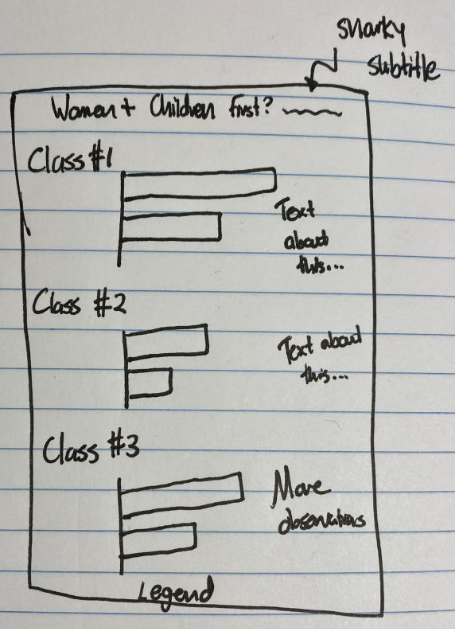 snarky
subtitle
Women + Children first?
Class #1
Text
about
this...
Class #2
Text about
this...
Class #3
More
observations
Legend